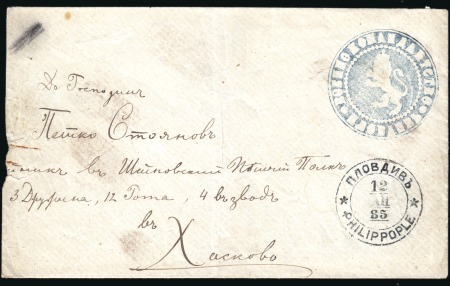 До Господин
Петко Стоянов
въ Шипковский Пѣший Полкъ
3 Дружина, 12 Рота, 4 взводъ
въ
Хасково
ПЛОВДИВЪ
12
XII
85
PHILIPPOPLE